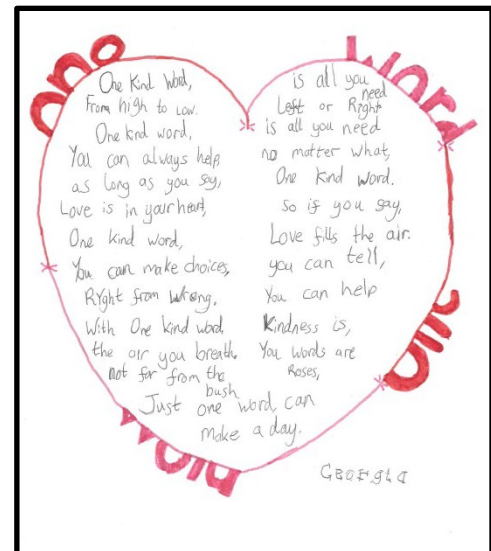 One
Word
One Kind Word,
From high to Low.
One kind word,
You can always help
as long as you say,
Love is in your heart,
One kind word,
You can make choices,
Ryght from Wrong.
With One kind word
the air you breath.
not far from the
bush
is all you
need
Left or Right
is all you need
no matter what,
One Kind Word.
so if you say,
Love fills the air.
you can tell,
You can help
Kindness is,
You words are
Roses,
Just one word can
make a day.
Georgia